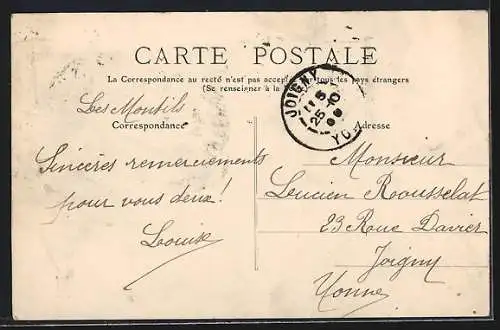 CARTE POSTALE
La Correspondance au recto n'est pas accep par tous les pays étrangers
(Se renseigner à la
JOIGNY
11 5
25 10
06
YO
Les Montils
Correspondance
Adresse
Sincères remerciements
pour vous deux!
Louise
Monsieur
Lucien Rousselat
23 Rue Davier
Joigny
Yonne